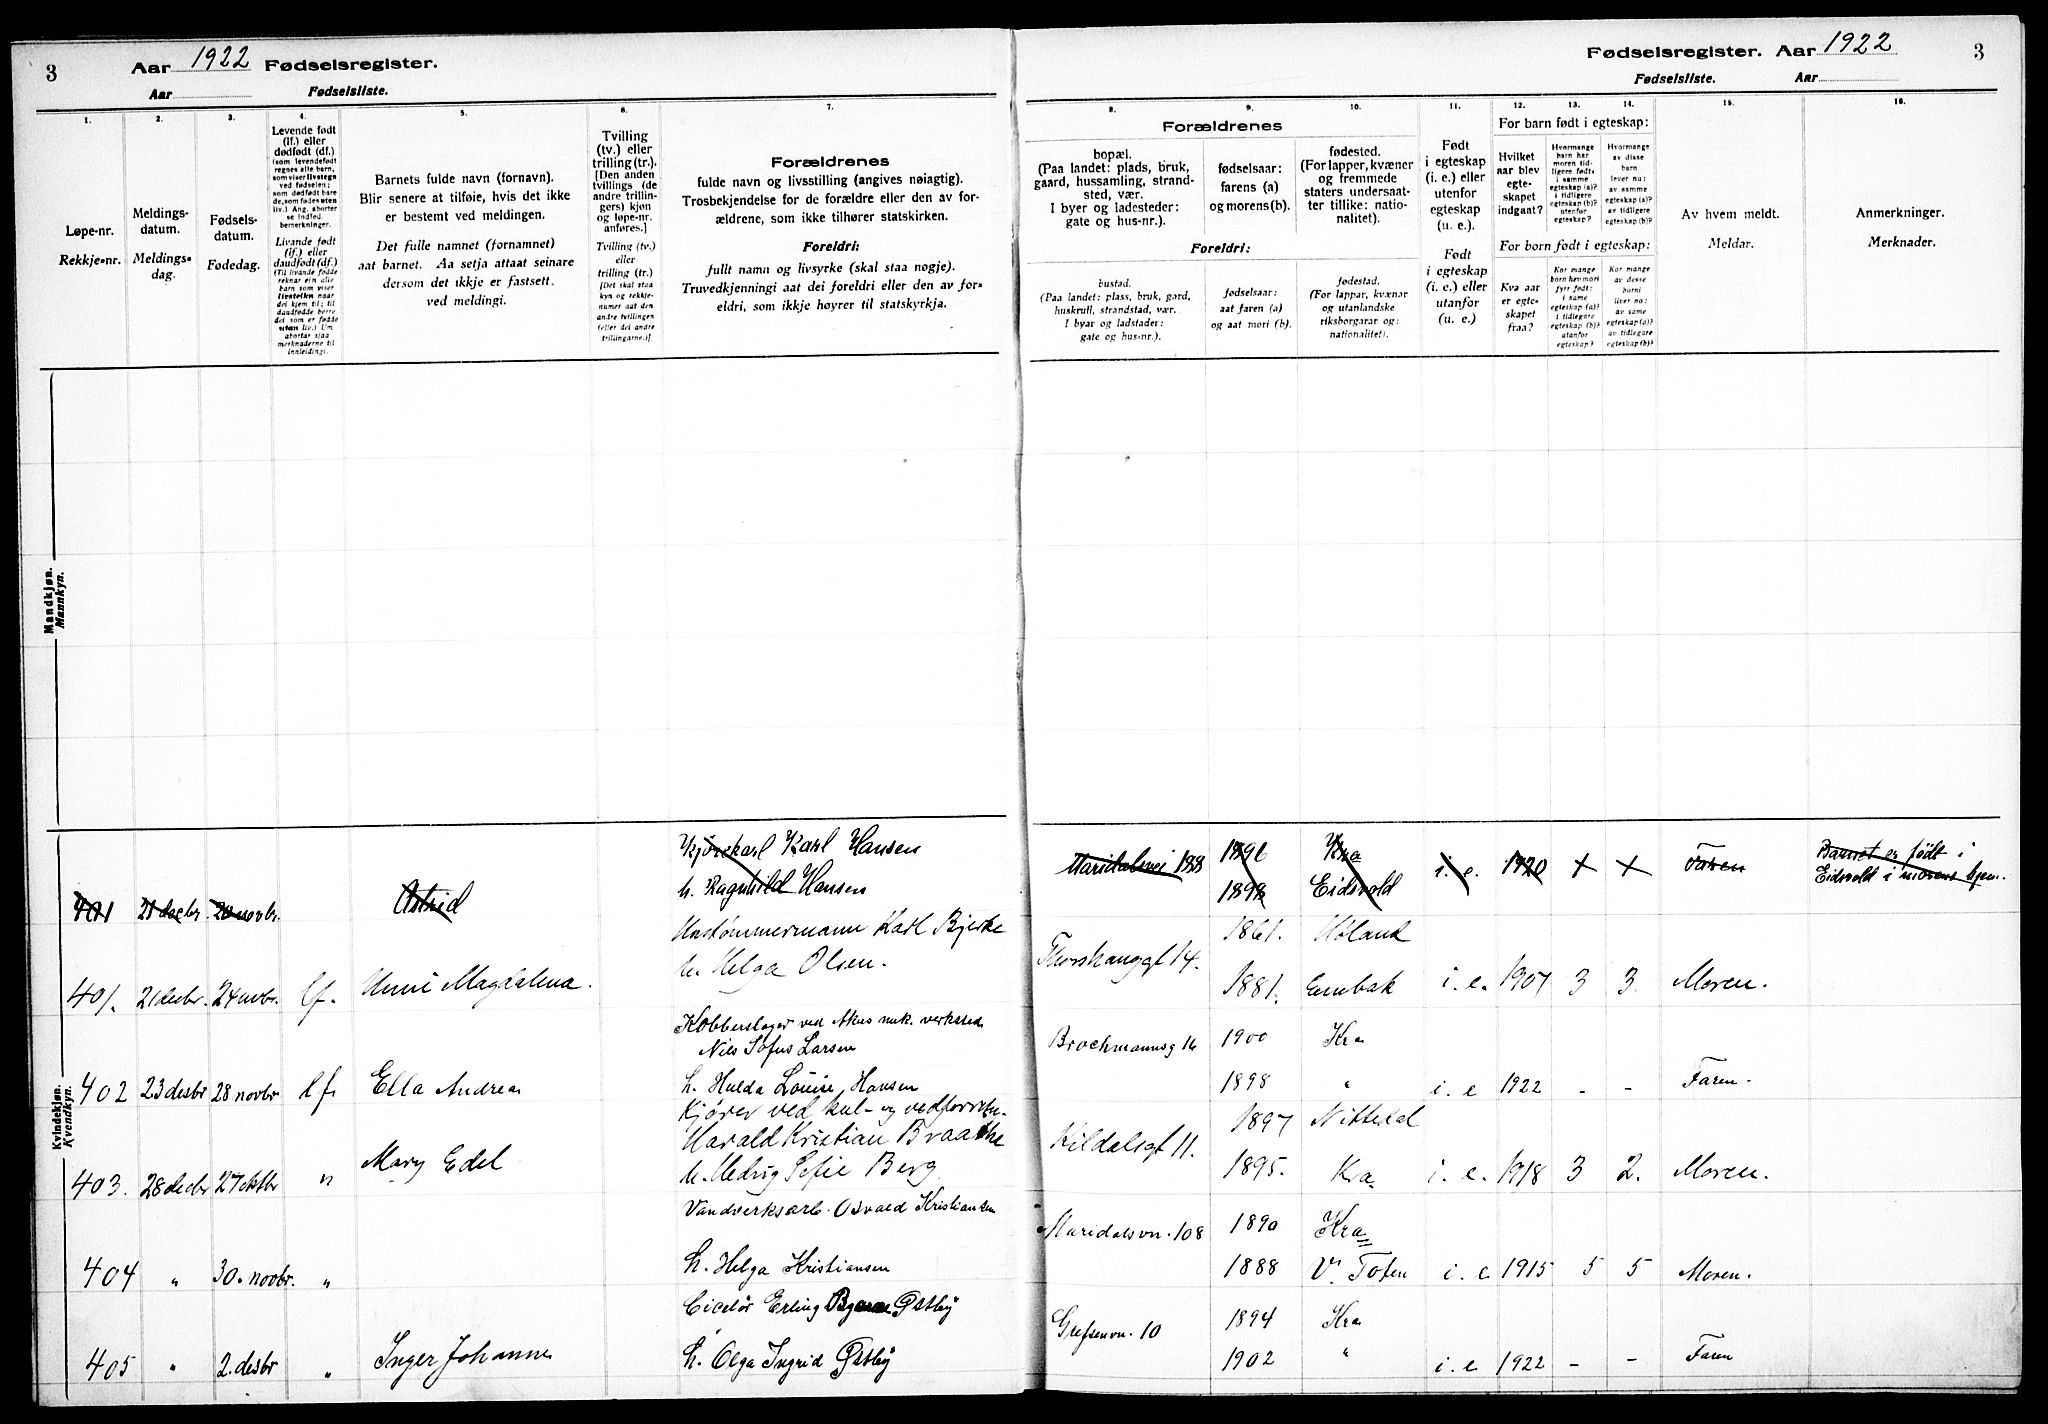 3 Aar 1922 Fødselsregister.
Aar Fødselsliste.
Fødselsregister. Aar 1922 3
Fødselsliste. Aar
1. 2. 3. 4. 5. 6. 7. 8. 9. 10. 11. 12. 13. 14. 15. 16.
Løpe-nr.
Rekkje-nr.
Meldings-
datum.
Meldings-
dag.
Fødsels-
datum.
Fødedag.
Levende født
(lf.) eller
dødfødt (df.)
(som levendefødt
regnes alle barn,
som viser livstegn
ved fødselen;
som dødfødt bare
de, som fødes uten
liv.) Ang. aborter
se indled.
bemerkninger.
Livande født
(lf.) eller
daudfødt (df.)
(Til livande fødde
reknar ein alle
barn som viser
livsteikn naar
dei kjem til; til
daudfødde berre
dei som er fødde
utan liv.) Um
abortar sjaa
merknaderne til
innleidingi.
Barnets fulde navn (fornavn).
Blir senere at tilføie, hvis det ikke
er bestemt ved meldingen.
Det fulle namnet (fornamnet)
aat barnet. Aa setja attaat seinare
dersom det ikkje er fastsett.
ved meldingi.
Tvilling
(tv.) eller
trilling (tr.).
[Den anden
tvillings (de
andre trillin-
gers) kjøn
og løpe-nr.
anføres.]
Tvilling (tv.)
eller
trilling (tr.)
[Det skal staa
kyn og rekkje-
numer aat den
andre tvillingen
(eller dei andre
trillingarne.)]
Forældrenes
fulde navn og livsstilling (angives nøiagtig).
Trosbekjendelse for de forældre eller den av for-
ældrene, som ikke tilhører statskirken.
Foreldri:
fullt namn og livsyrke (skal staa nøgje).
Truvedkjenningi aat dei foreldri eller den av for-
eldri, som ikkje høyrer til statskyrkja.
Forældrenes
bopæl.
(Paa landet: plads, bruk,
gaard, hussamling, strand-
sted, vær.
I byer og ladesteder:
gate og hus-nr.).
fødselsaar:
farens (a)
og morens (b).
fødested.
(For lapper, kvæner
og fremmede
staters undersaat-
ter tillike: natio-
nalitet).
Foreldri:
bustad.
(Paa landet: plass, bruk, gard,
huskrull, strandstad, vær.
I byar og ladstader:
gate og hus-nr.).
fødselsaar:
aat faren (a)
og aat mori (b).
fødestad.
(For lappar, kvænar
og utanlandske
riksborgarar og:
nationalitet).
Født
i egteskap
(i. e.) eller
utenfor
egteskap
(u. e.).
Født
i egteskap
(i. e.) eller
utanfor
(u. e.)
For barn født i egteskap:
Hvilket
aar blev
egte-
skapet
indgaat?
Hvormange
barn har
moren tid-
ligere født,
i samme
egteskap (a)?
i tidligere
egteskap (b)?
utenfor
egteskap?
Hvormange
av disse
barn
lever nu:
av samme
egteskap (a)?
av tidligere
egteskap (b)?
For born født i egteskap:
Kva aar
er egte-
skapet
fraa?
Kor mange
born hev mori
fyrr født:
i same
egteskap (a)?
i tidlegare
egteskap (b)?
utanfor
egteskap?
Kor mange
av desse
borni
liver no:
av same
egteskap (a)?
av tidlegare
egteskap (b)?
Av hvem meldt.
Meldar.
Anmerkninger.
Merknader.
Mandkjøn.
Mannkyn.
Kvindekjøn.
Kvendkyn.
Kjørekarl Karl Hansen Maridalsvei 188 1896 Kra i. e. 1920 + + Faren Barnet er født i
401 21 decbr. 20 novbr. Astrid h. Ragnhild Hansen 1898 Eidsvold Eidsvold i morens hjem.
Hustømmermann Karl Bjerke Thorshauggt 14. 1861. Høland
401. 21 decbr. 24 novbr. lf. Unni Magdalena. h. Helga Olsen. 1881. Enebak i. e. 1907 3 3. Moren.
Kobberslager ved Akers mek. verksted
Nils Sofus Larsen Brochmannsg 16 1900 Kra
402 23 desbr 28 novbr. lf. Ella Andrea h. Hulda Louise, Hansen 1898 " i. e 1922 - - Faren.
Kjører ved kul- og vedforretn.
Harald Kristian Braathe Kildalsgt 11. 1897 Nittedal
403. 28 decbr 27 oktbr " Mary Edel h. Hedvig Sofie Berg. 1895. Kra i. e. 1918 3 2. Moren.
Vandverksarb. Osvald Kristiansen Maridalsvn. 108 1890 Kra
404 " 30. novbr. " h. Helga Kristiansen 1888 V. Toten i. e 1915 5 5 Moren.
Ciselør Erling Østby Grefsenvn. 10 1894 Kra
405 " 2. desbr " Inger Johanne h. Olga Ingrid Østby 1902 " i. e 1922 - - Faren